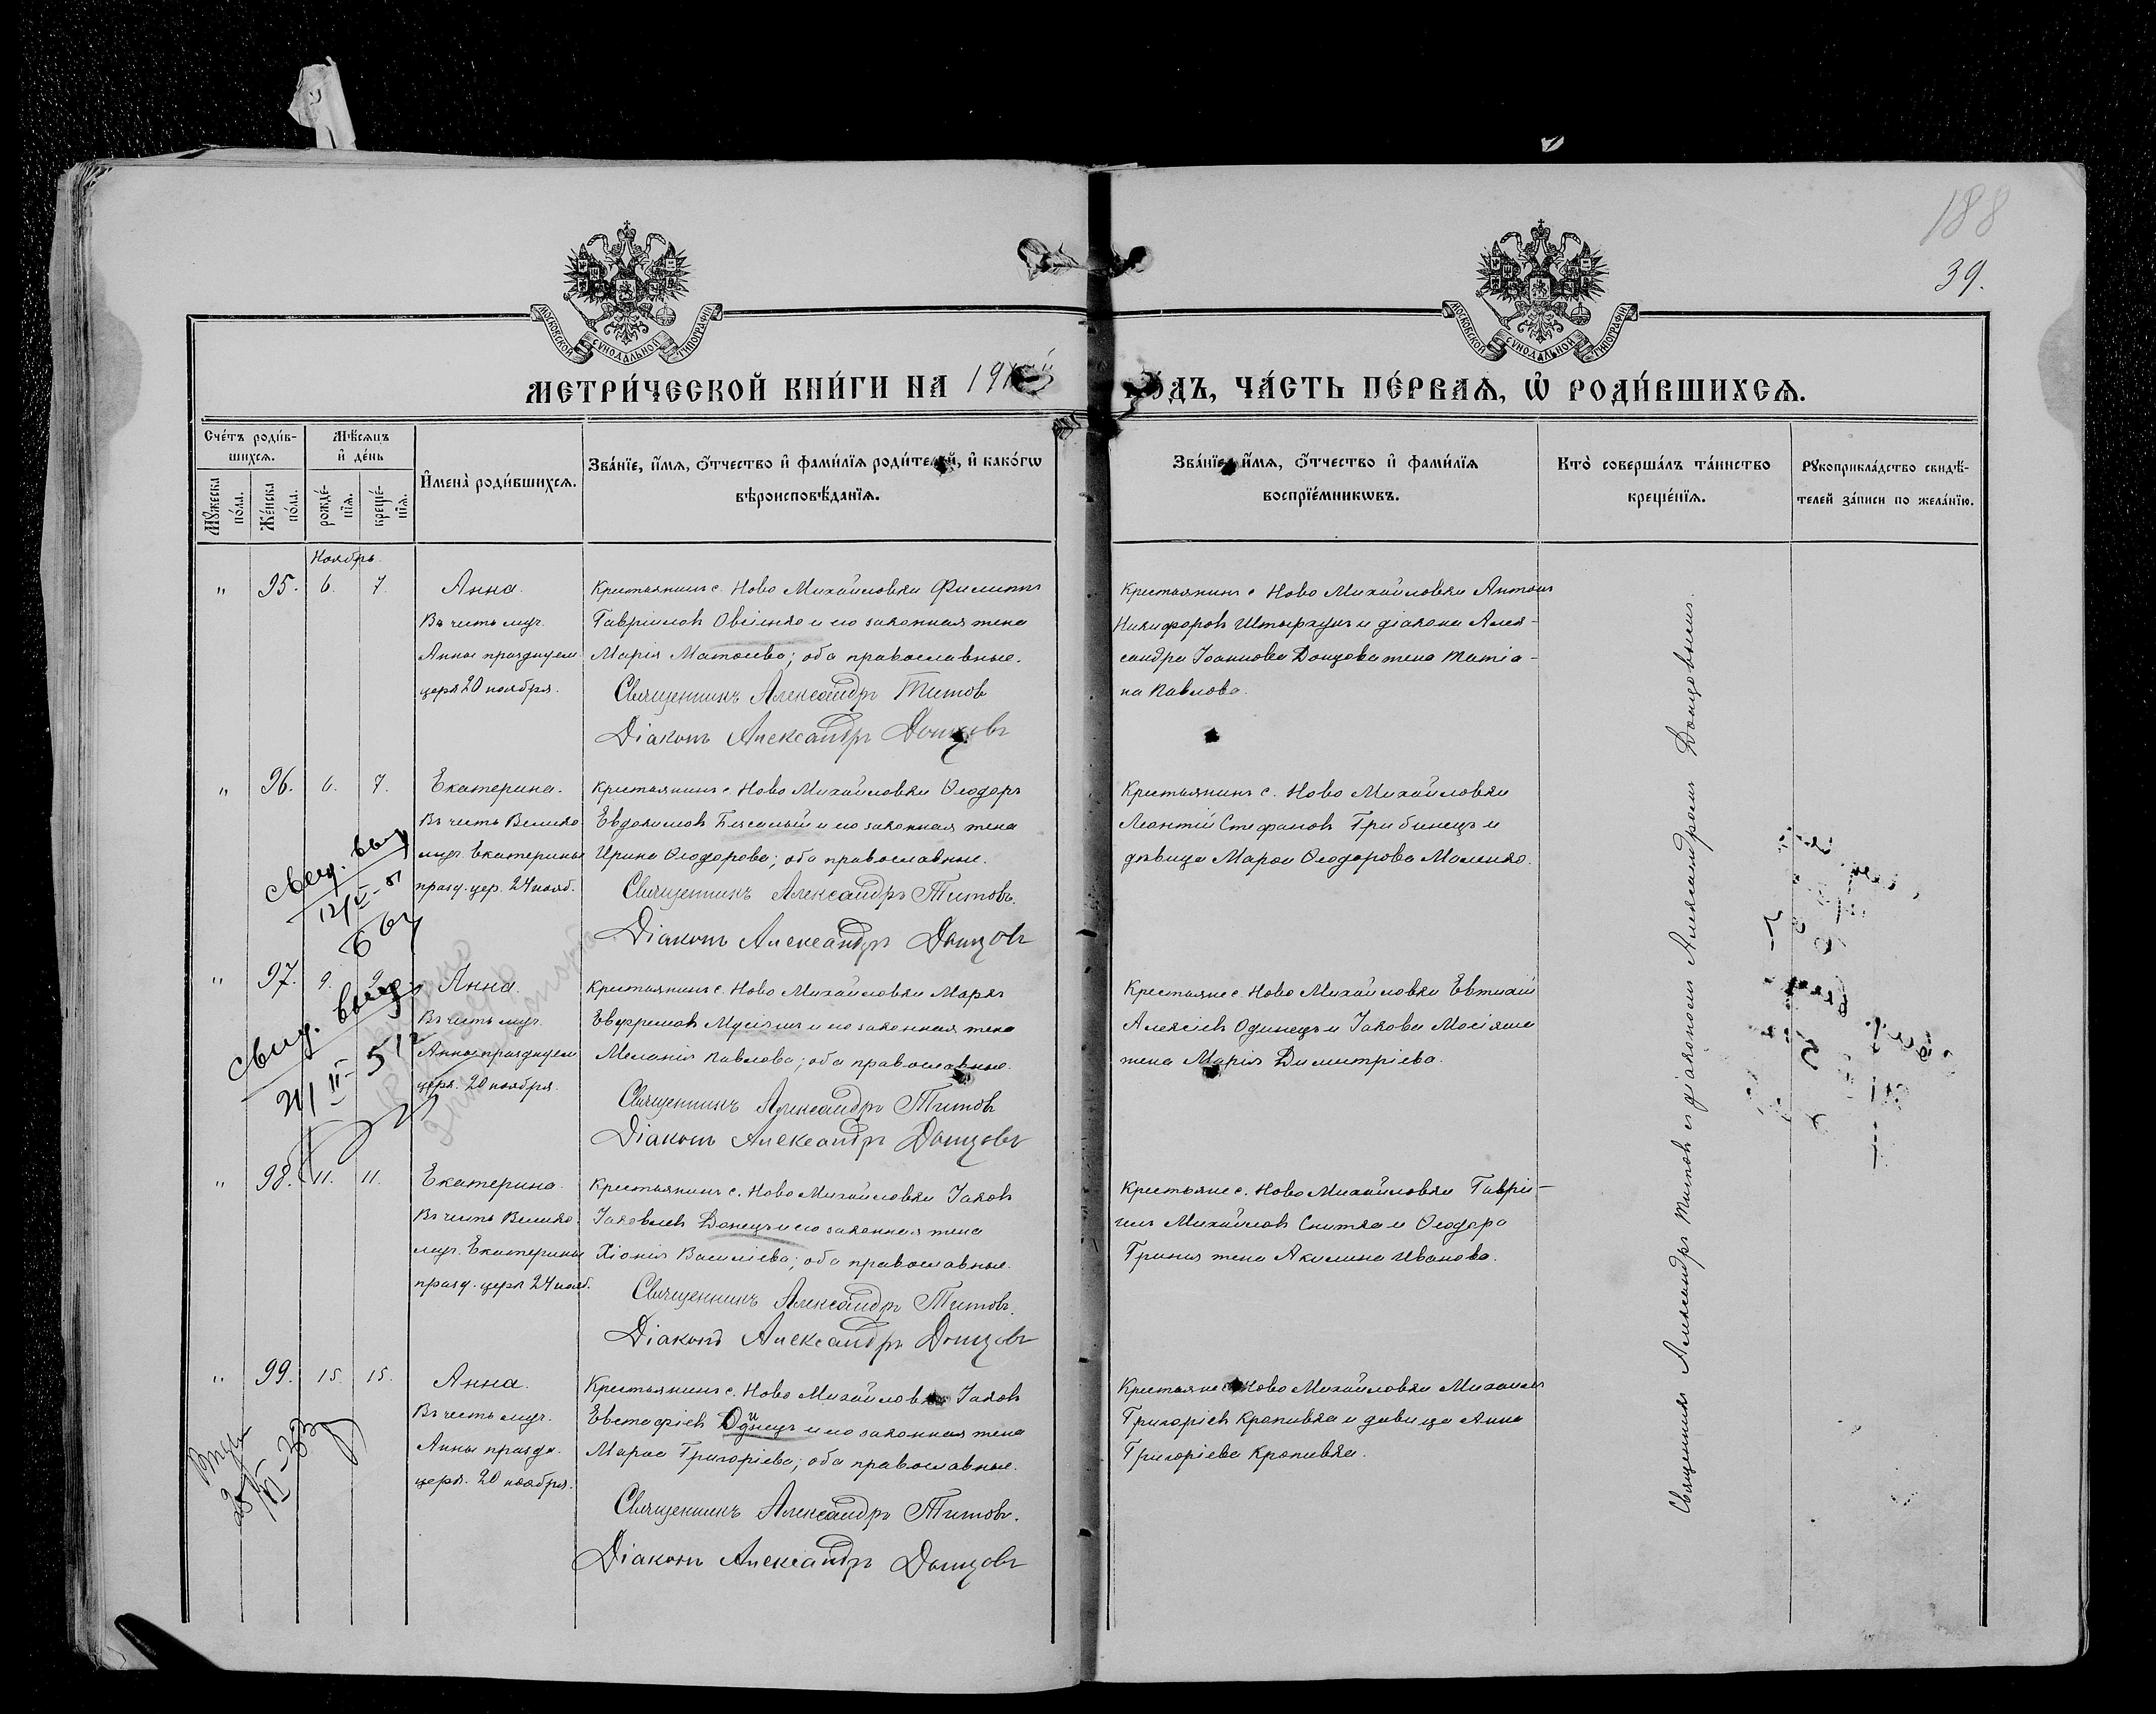 188
39.
МОСКОВСКОЙ СУНОДАЛЬНОЙ ТИПОГРАФІИ
МОСКОВСКОЙ СУНОДАЛЬНОЙ ТИПОГРАФІИ
МЕТРИ́ЧЕСКОЙ КНИ́ГИ НА 19
ГО́ДЪ, ЧА́СТЬ ПЕ́РВАѦ, Ѽ РОДИ́ВШИХСѦ.
Сче́тъ роди́в-
шихсѧ.
Мꙋ́жеска по́ла.
Же́нска по́ла.
Мѣ́сѧцъ
и҆ де́нь
рожде́-
нїѧ.
креще́-
нїѧ.
И҆мена̀ роди́вшихсѧ.
Зва́нїе, и҆́мѧ, ѻ҆́тчество и҆ фами́лїѧ роди́телей, и҆ како́гѡ
вѣроисповѣ́данїѧ.
Зва́нїе, и҆́мѧ, ѻ҆́тчество и҆ фами́лїѧ
воспрїе́мникѡвъ.
Кто̀ соверша́лъ та́инство
креще́нїѧ.
Рꙋкоприкла́дство свидѣ́-
телей за́писи по жела́нїю.
Ноябрь.
" 95. 6. 7.
Анна.
Въ честь муч.
Анны празднуем.
церк. 20 ноября.
Крестьянинъ с. Ново Михайловки Филиппъ
Гавріиловъ Овсіенко и его законная жена
Марія Матвѣева; оба православные.
Священникъ Александръ Титовъ
Діаконъ Александръ Донцовъ
Крестьянинъ с. Ново Михайловки Антонъ
Никифоровъ Штырхунъ и діакона Алек-
сандра Іоаннова Донцова жена Татіа-
на Павлова.
" 96. 6. 7.
Екатерина.
Въ честь Велико
муч. Екатерины
празд. цер. 24 нояб.
Крестьянинъ с. Ново Михайловки Ѳеодоръ
Евдокимовъ и его законная жена
Ирина Ѳеодорова; оба православные.
Священникъ Александръ Титовъ.
Діаконъ Александръ Донцовъ
Крестьянинъ с. Ново Михайловки
Леонтій Стефановъ Грибинецъ и
дѣвица Марѳа Ѳеодорова Маленко.
" 97. 9. 9.
Анна.
Въ честь муч.
Анны празднуем.
церк. 20 ноября.
Крестьянинъ с. Ново Михайловки Маркъ
Евфремовъ и его законная жена
Меланія Павлова; оба православные.
Священникъ Александръ Титовъ
Діаконъ Александръ Донцовъ
Крестьяне с. Ново Михайловки Евтихій
Алексіевъ Одинецъ и Іакова
жена Марія Димитріева.
" 98. 11. 11.
Екатерина.
Въ честь Велико
муч. Екатерины
празд. церк 24 нояб.
Крестьянинъ с. Ново Михайловки Іаковъ
Іаковлевъ Донецъ и его законная жена
Хіонія Василіева; оба православные.
Священникъ Александръ Титовъ.
Діаконъ Александръ Донцовъ
Крестьяне с. Ново Михайловки Гаврі-
илъ Михайловъ Снитка и Ѳеодора
жена Акилина Иванова.
" 99. 15. 15.
Анна.
Въ честь муч.
Анны праздн.
церк. 20 ноября.
Крестьянинъ с. Ново Михайловки Іаковъ
Евстафіевъ Одинецъ и его законная жена
Марѳа Григоріева; оба православные.
Священникъ Александръ Титовъ.
Діаконъ Александръ Донцовъ
Крестьяне с. Ново Михайловки Михаилъ
Григоріевъ Кропивка и дѣвица Анна
Григоріева Кропивка.
Священникъ Александръ Титовъ съ діакономъ Александромъ Донцовымъ.
свид. выд
свид. выд